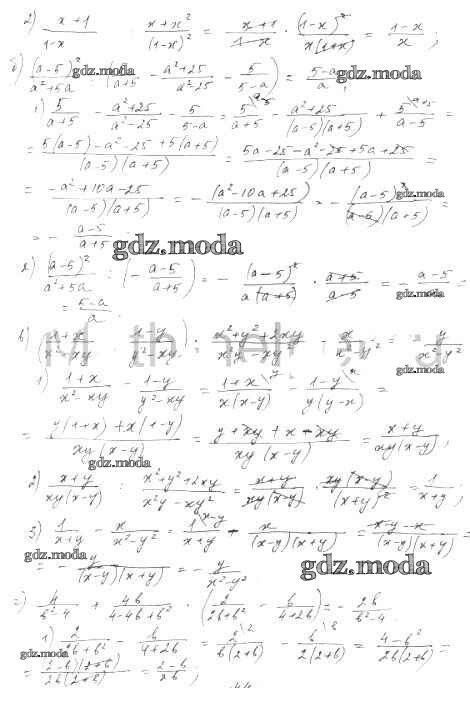 2) (x+1)/(1-x) : (x+x²)/(1-x)² = (x+1)/(1-x) · (1-x)²/(x(1+x)) = (1-x)/x ;
б) (a-5)²/(a²+5a) : (5/(a+5) - (a²+25)/(a²-25) - 5/(5-a)) = (5-a)/a ;
gdz.moda
gdz.moda
1) 5/(a+5) - (a²+25)/(a²-25) - 5/(5-a) = 5/(a+5) - (a²+25)/((a-5)(a+5)) + 5/(a-5) =
= (5(a-5)-a²-25+5(a+5))/((a-5)(a+5)) = (5a-25-a²-25+5a+25)/((a-5)(a+5)) =
= (-a²+10a-25)/((a-5)(a+5)) = - (a²-10a+25)/((a-5)(a+5)) = - (a-5)²/((a-5)(a+5)) =
gdz.moda
= - (a-5)/(a+5) ;
gdz.moda
2) (a-5)²/(a²+5a) : (- (a-5)/(a+5)) = - (a-5)²/(a(a+5)) · (a+5)/(a-5) = - (a-5)/a =
gdz.moda
= (5-a)/a
в) ((1+x)/(x²-xy) - (1-y)/(y²-xy)) : (x²+y²+2xy)/(x²y-xy²) - x/(x²-y²) = - y/(x²-y²)
gdz.moda
1) (1+x)/(x²-xy) - (1-y)/(y²-xy) = (1+x)/(x(x-y)) - (1-y)/(y(y-x)) =
= (y(1+x)+x(1-y))/(xy(x-y)) = (y+xy+x-xy)/(xy(x-y)) = (x+y)/(xy(x-y)) ;
gdz.moda
2) (x+y)/(xy(x-y)) : (x²+y²+2xy)/(x²y-xy²) = (x+y)/(xy(x-y)) · (xy(x-y))/(x+y)² = 1/(x+y) ;
3) 1/(x+y) - x/(x²-y²) = 1/(x+y) - x/((x-y)(x+y)) = (x-y-x)/((x-y)(x+y)) =
gdz.moda
= - y/((x-y)(x+y)) = - y/(x²-y²)
gdz.moda
г) 4/(b²-4) + 4b/(4-4b+b²) · (2/(2b+b²) - b/(4+2b)) = - 2b/(b²-4)
1) 2/(2b+b²) - b/(4+2b) = 2/(b(2+b)) - b/(2(2+b)) = (4-b²)/(2b(2+b)) =
gdz.moda
= ((2-b)(2+b))/(2b(2+b)) = (2-b)/2b ;